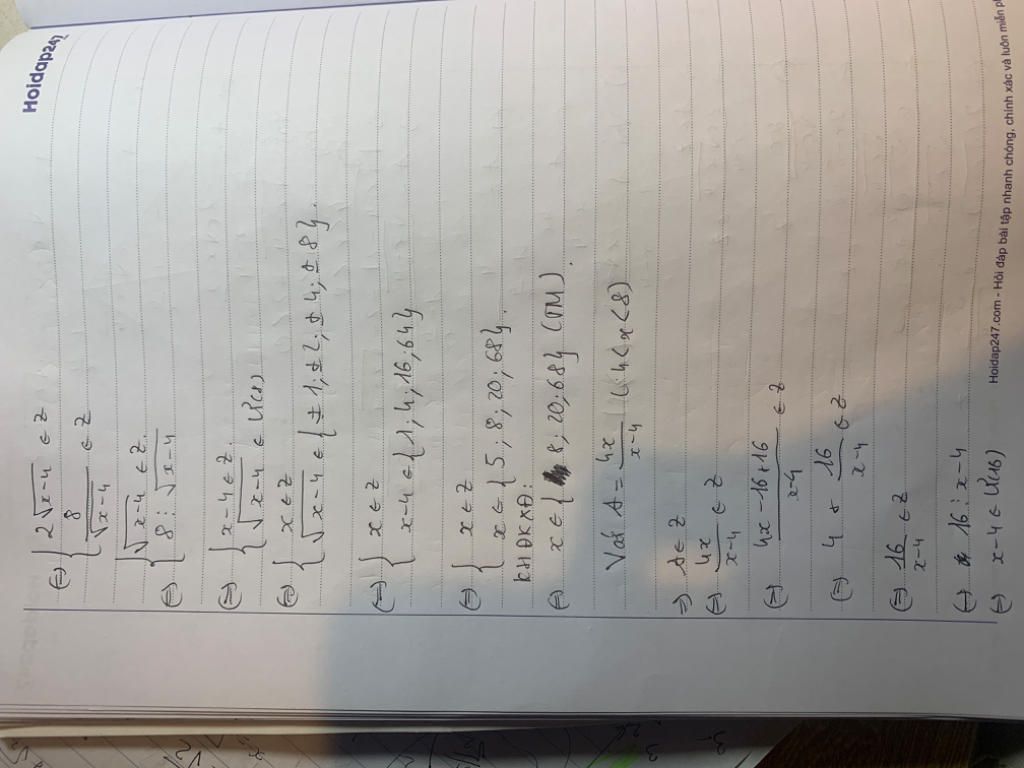 Hoidap247
⇔ { 2√x-4 ∈ Z
8/√x-4 ∈ Z
{ √x-4 ∈ Z.
⇔ { 8 ⋮ √x-4
⇔ { x-4 ∈ Z.
√x-4 ∈ Ư(8)
⇔ { x ∈ Z
√x-4 ∈ {±1; ±2; ±4; ±8}.
⇔ { x ∈ Z
x-4 ∈ {1; 4; 16; 64}
⇔ { x ∈ Z
x ∈ {5; 8; 20; 68}.
KHĐKXĐ:
⇔ x ∈ {8; 20; 68} (TM).
Với A = 4x/x-4 (4<x<8)
⇒ A ∈ Z
⇔ 4x/x-4 ∈ Z
⇔ 4x-16+16/x-4 ∈ Z
⇔ 4 + 16/x-4 ∈ Z
⇔ 16/x-4 ∈ Z
⇔ 16 ⋮ x-4
⇔ x-4 ∈ Ư(16)
Hoidap247.com - Hỏi đáp bài tập nhanh chóng, chính xác và luôn miễn